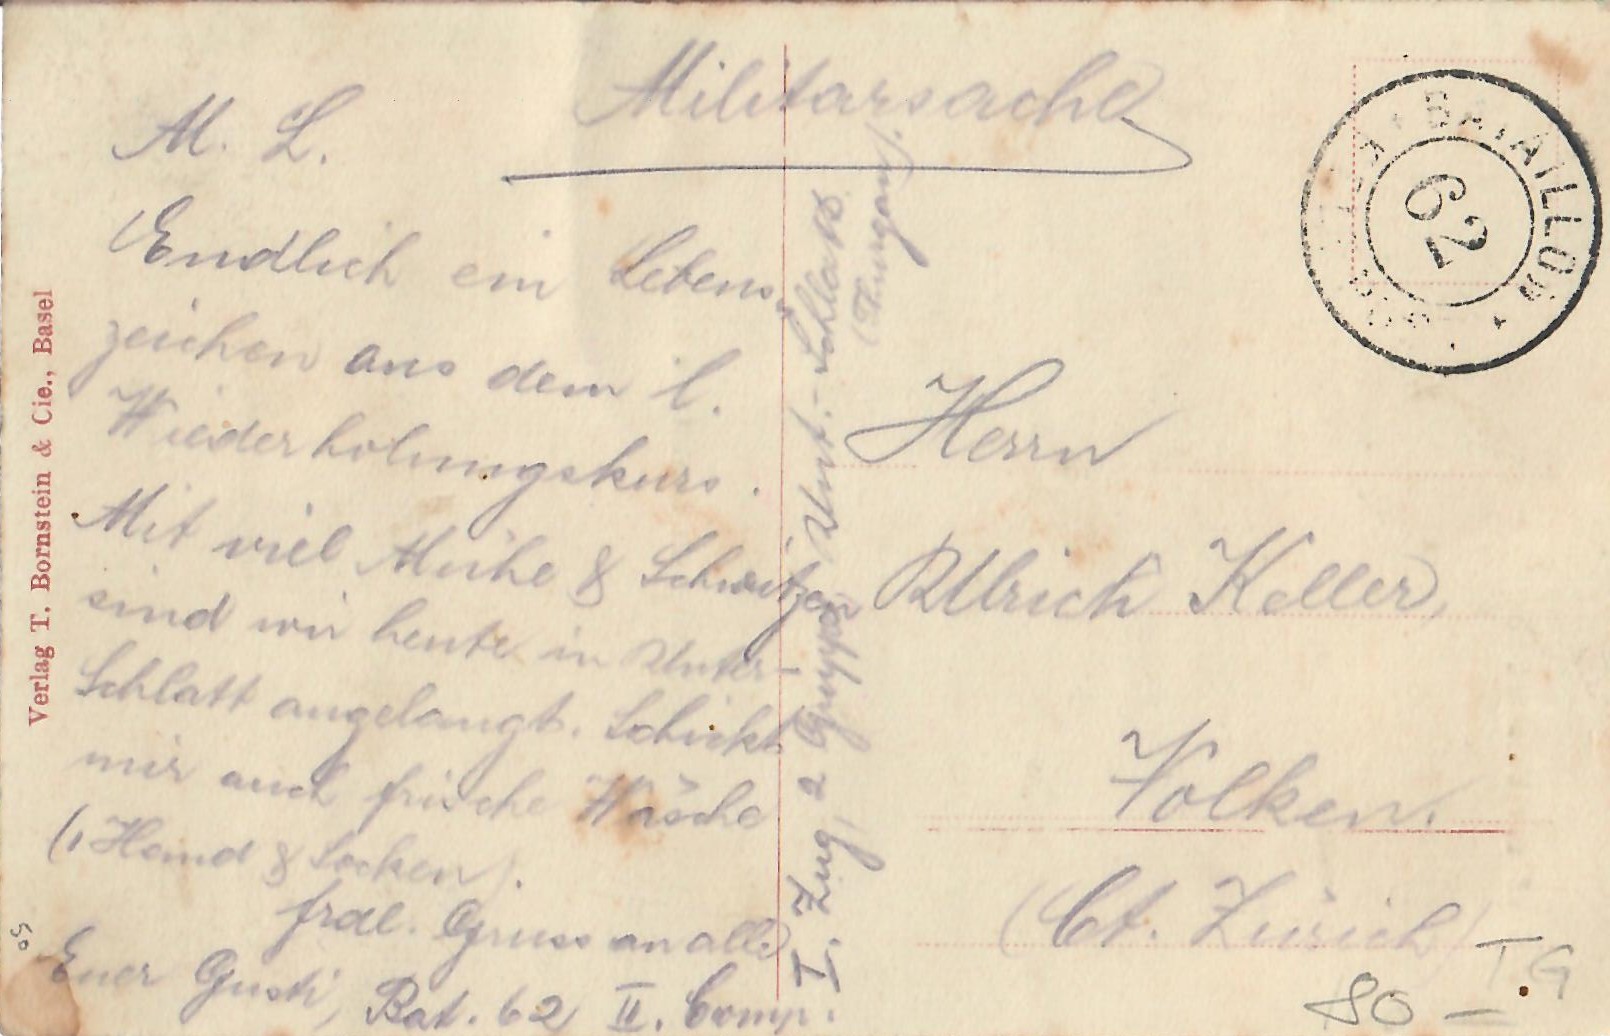 Militärsache
M. L.
Endlich ein Lebens,,
zeichen aus dem l.
Wiederholungskurs.
Mit viel Mühe & Schwitzen
sind wir heute in Unter-
Schlatt angelangt. Schickt
mir auch frische Wäsche
(1 Hemd & Socken).
frdl. Gruss an alle
Euer Gusti, Bat. 62 II. Comp.
I. Zug, 2 Gruppe Unt.-Schlatt
(Thurgau).
Herrn
Ulrich Keller,
Volken.
(Ct. Zürich)
BATAILLON
62
Verlag T. Bornstein & Cie., Basel
TG
80 –
50